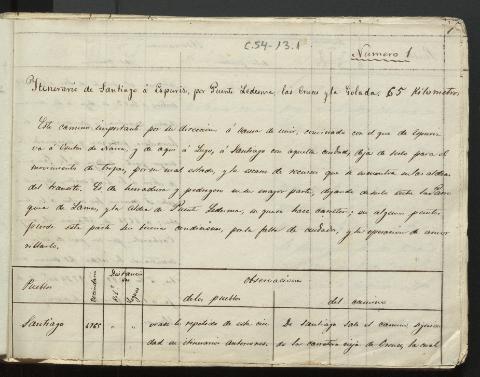 C.54-13.1
Numero 1
Itinerario de Santiago á Esparis, por Puente Ledesma, las Cruces y la Golada. 65 Kilometros
Este camino, importante por su direccion á causa de unir, con el que de
va á de Narra, y de aqui á Lugo, á Santiago con aquella ciudad, deja de serlo para el
movimiento de tropas, por su mal estado, y la escasez de recursos que se encuentra en las aldeas
del transito. Es de herradura y pedregoso en su mayor parte, dejando de serlo entre la Parro
quia de Lamas, y la Aldea de Puente Ledesma, en que se hace carretero, y en algunos puntos
pierde esta parte sus buenas condiciones, por la falta de cuidado, y la operacion de
Pueblos
Vecindario
Distancia
Leguas
Observaciones
de los pueblos
del camino
Santiago
vease lo repetido de esta ciu De Santiago sale el camino siguien
dad en itinerarios anteriores. do la carretera vieja de Orense, la cual